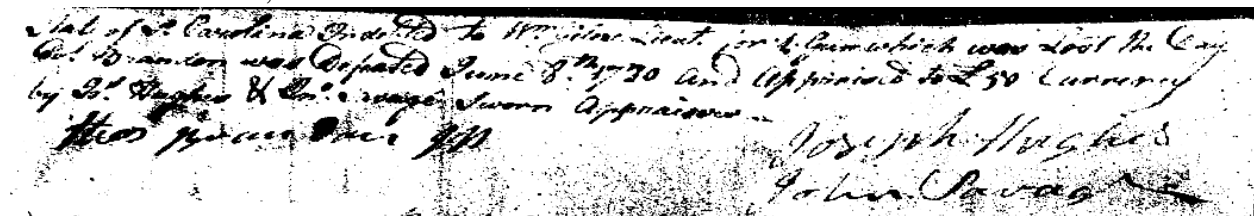 State of So Carolina Indebted to Wm Lieut for a Gun which was Lost the Day
Col Brandon was Defeated June 8th 1780 And Appraised to £50 Currency
by Js Hughes & Jno Savage Sworn Appraisers
Thos Brandon JP
Joseph Hughes
John Savage